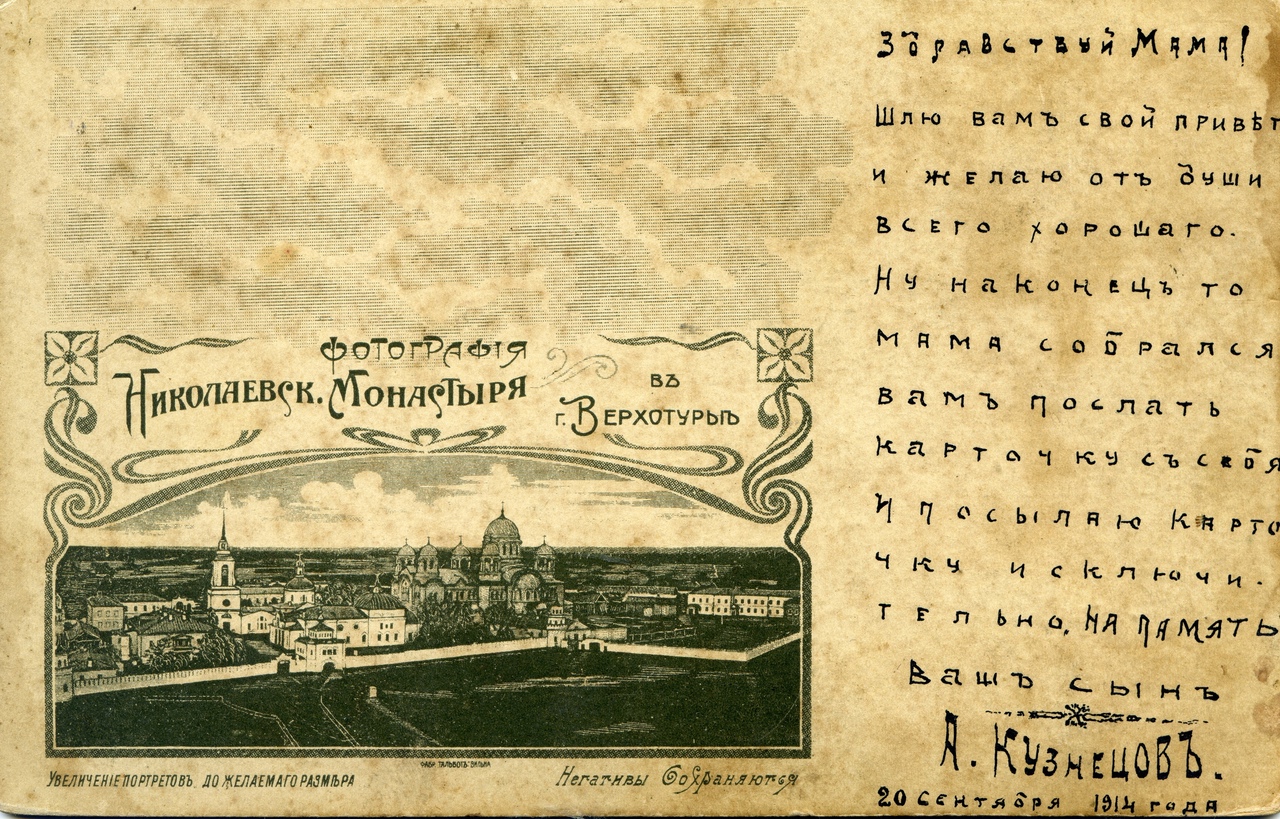 ФОТОГРАФІЯ
НИКОЛАЕВСК. МОНАСТЫРЯ
ВЪ
Г. ВЕРХОТУРЬѢ
УВЕЛИЧЕНІЕ ПОРТРЕТОВЪ ДО ЖЕЛАЕМАГО РАЗМѢРА
Негативы Сохраняются
Здравствуй Мама!
Шлю вамъ свой привѣт
и желаю отъ души
всего хорошаго.
Ну наконецъ то
мама собрался
вамъ послать
карточку съ себя
И посылаю карто
чку исключи-
тельно, НА ПАМЯТЬ
Вашъ сынъ
А. КузнецовЪ.
20 сентября 1914 года